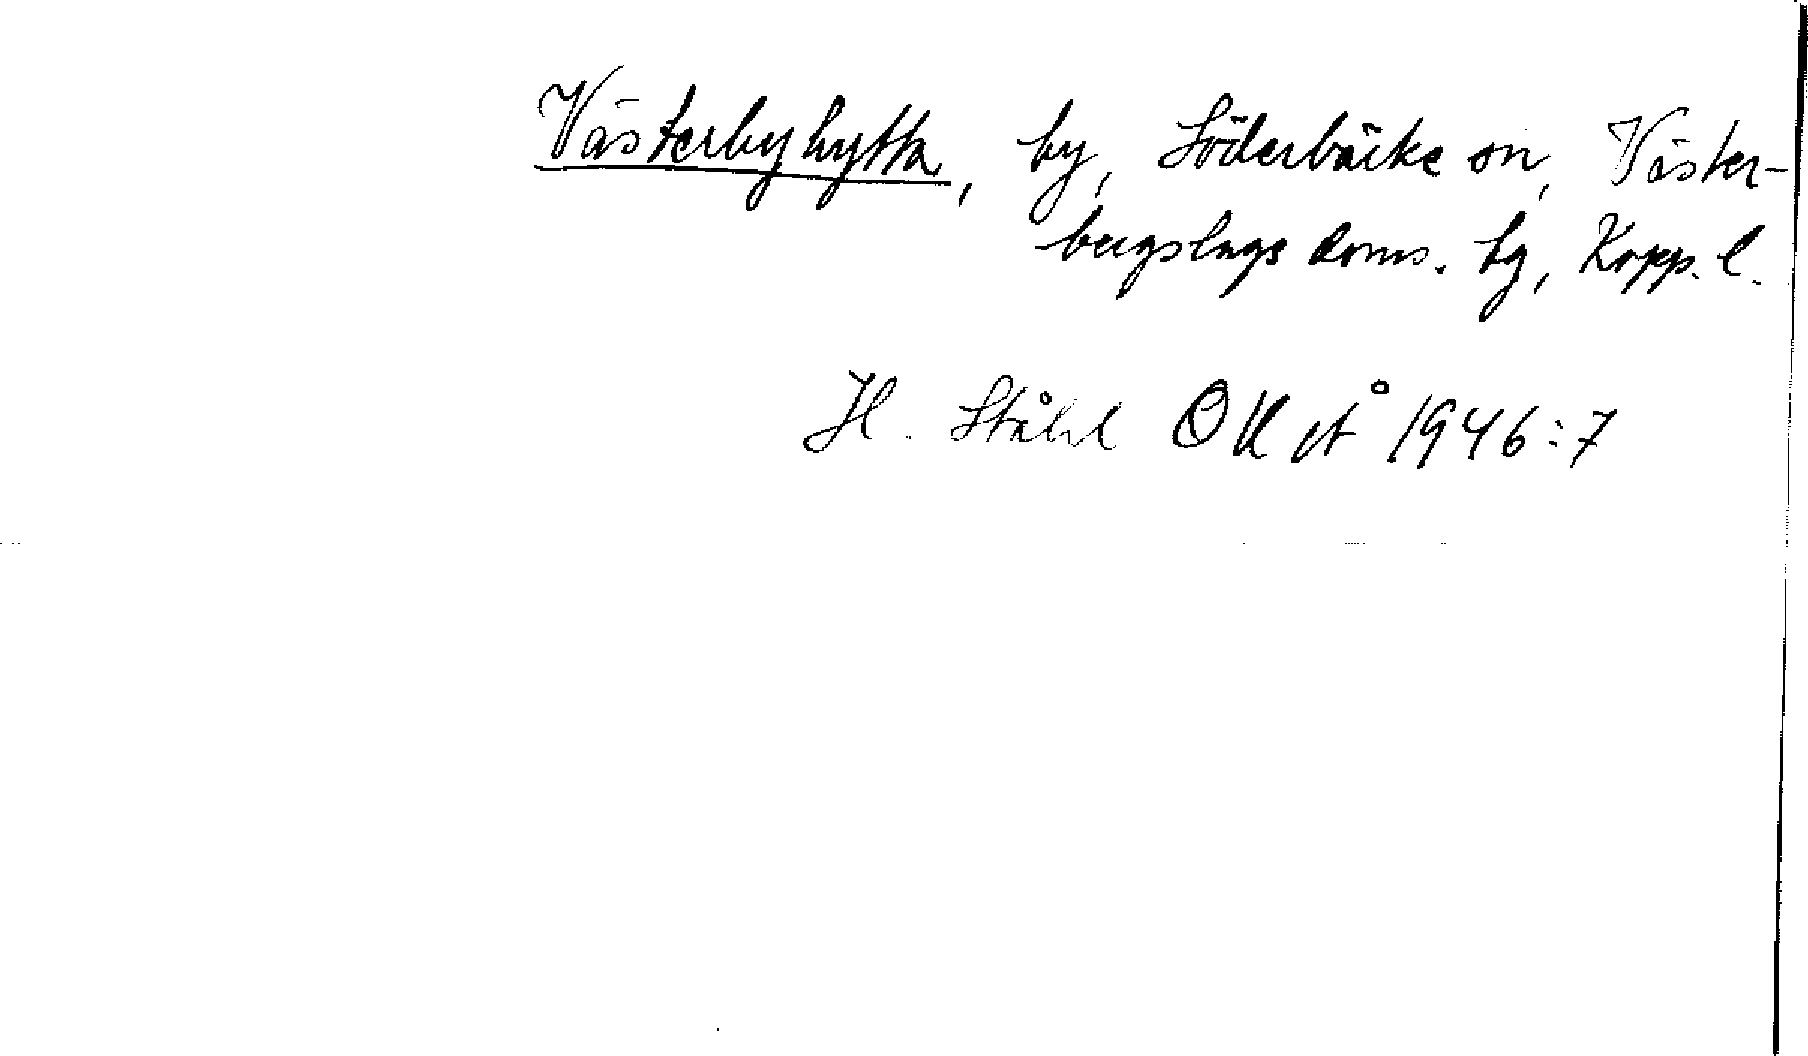 Västerbyhytta, by, Söderbärke sn, Väster-
bergslags doms. hg, Kopp. l.
H. Ståhl OUÅ 1946:7